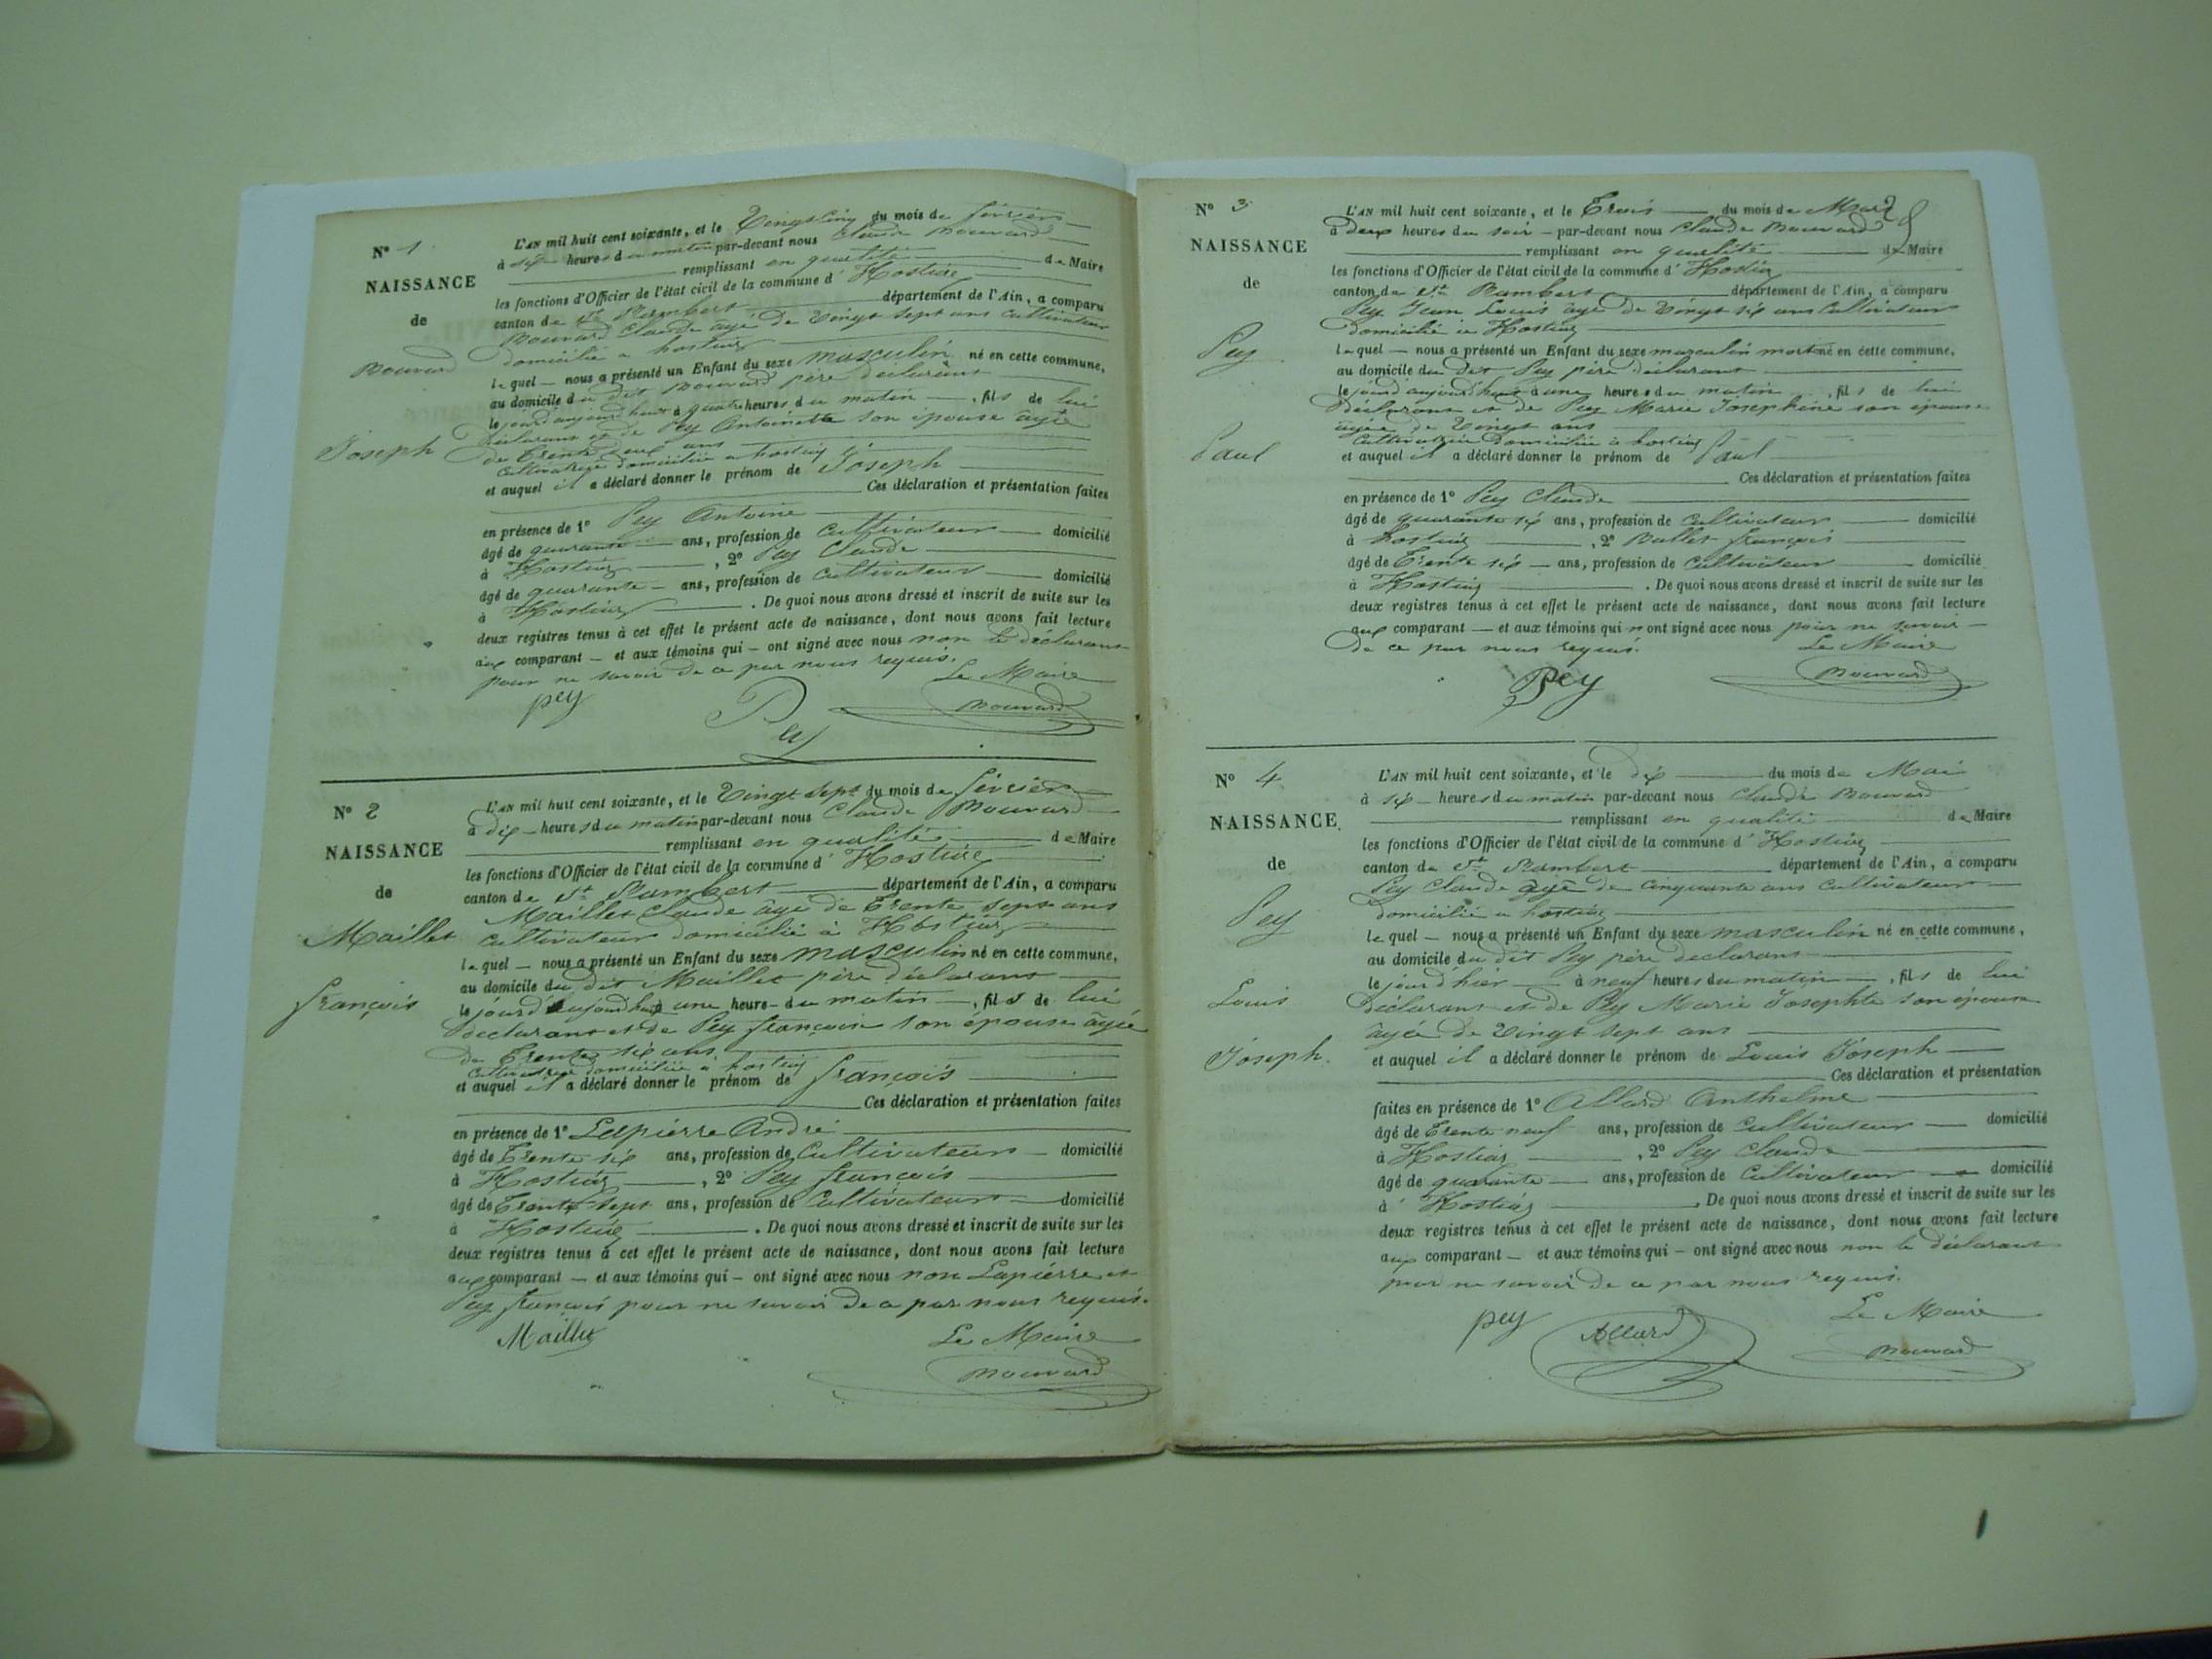 N° 1
NAISSANCE
de
Bouvard
Joseph
L'AN mil huit cent soixante, et le Vingt cinq du mois de février
à dix heures du matin par-devant nous Claude Bouvard
remplissant en qualité de Maire
les fonctions d'Officier de l'état civil de la commune d'Hostiaz
canton de St Rambert département de l'Ain, a comparu
Bouvard Claude âgé de Vingt sept ans cultivateur
domicilié à hostiaz
lequel nous a présenté un Enfant du sexe masculin né en cette commune,
au domicile du dit Bouvard père déclarant
le jourd'aujourd'hui à quatre heures du matin, fils de lui
déclarant et de Pey Antoinette son épouse âgée
de Trente ans
cultivatrice domiciliée à hostiaz
et auquel il a déclaré donner le prénom de Joseph
Ces déclaration et présentation faites
en présence de 1° Pey Antoine
âgé de quarante ans, profession de Cultivateur domicilié
à Hostiaz, 2° Pey Claude
âgé de quarante ans, profession de Cultivateur domicilié
à Hostiaz. De quoi nous avons dressé et inscrit de suite sur les
deux registres tenus à cet effet le présent acte de naissance, dont nous avons fait lecture
aux comparant et aux témoins qui ont signé avec nous non le déclarant
pour ne savoir de ce par nous requis.
Le Maire
pey Pey Bouvard
N° 2
NAISSANCE
de
Maillet
françois
L'AN mil huit cent soixante, et le Vingt Sept du mois de février
à dix heures du matin par-devant nous Claude Bouvard
remplissant en qualité de Maire
les fonctions d'Officier de l'état civil de la commune d'Hostiaz
canton de St Rambert département de l'Ain, a comparu
Maillet Claude âgé de Trente Sept ans
cultivateur domicilié à Hostiaz
lequel nous a présenté un Enfant du sexe masculin né en cette commune,
au domicile du dit Maillet père déclarant
le jourd'aujourd'hui à une heure du matin, fils de lui
déclarant et de Pey françoise son épouse âgée
de Trente six ans
Cultivatrice domiciliée à hostiaz
et auquel il a déclaré donner le prénom de françois
Ces déclaration et présentation faites
en présence de 1° Lapierre André
âgé de Trente six ans, profession de Cultivateur domicilié
à Hostiaz, 2° Pey françois
âgé de Trente Sept ans, profession de Cultivateur domicilié
à Hostiaz. De quoi nous avons dressé et inscrit de suite sur les
deux registres tenus à cet effet le présent acte de naissance, dont nous avons fait lecture
aux comparant et aux témoins qui ont signé avec nous non Lapierre et
Pey françois pour ne savoir de ce par nous requis.
Maillet Le Maire
Bouvard
N° 3
NAISSANCE
de
Pey
Paul
L'AN mil huit cent soixante, et le Trois du mois de Mars
à deux heures du soir par-devant nous Claude Bouvard
remplissant en qualité de Maire
les fonctions d'Officier de l'état civil de la commune d'Hostiaz
canton de St Rambert département de l'Ain, a comparu
Pey Jean Louis âgé de Vingt six ans Cultivateur
domicilié à Hostiaz
lequel nous a présenté un Enfant du sexe masculin mort né en cette commune,
au domicile du dit Pey père déclarant
le jourd'aujourd'hui à une heure du matin, fils de lui
déclarant et de Pey Marie Josephine son épouse
âgée de Vingt ans
Cultivatrice domiciliée à hostiaz
et auquel il a déclaré donner le prénom de Paul
Ces déclaration et présentation faites
en présence de 1° Pey Claude
âgé de quarante six ans, profession de Cultivateur domicilié
à hostiaz, 2° Ballet françois
âgé de Trente six ans, profession de Cultivateur domicilié
à Hostiaz. De quoi nous avons dressé et inscrit de suite sur les
deux registres tenus à cet effet le présent acte de naissance, dont nous avons fait lecture
aux comparant et aux témoins qui n'ont signé avec nous pour ne savoir
de ce par nous requis. Le Maire
Pey Bouvard
N° 4
NAISSANCE
de
Pey
Louis
Joseph.
L'AN mil huit cent soixante, et le dix du mois de Mai
à six heures du matin par-devant nous Claude Bouvard
remplissant en qualité de Maire
les fonctions d'Officier de l'état civil de la commune d'Hostiaz
canton de St Rambert département de l'Ain, a comparu
Pey Claude âgé de Cinquante ans Cultivateur
domicilié à hostiaz
lequel nous a présenté un Enfant du sexe masculin né en cette commune,
au domicile du dit Pey père déclarant
le jourd'hier à neuf heures du matin, fils de lui
déclarant et de Pey Marie Josephte son épouse
âgée de Vingt Sept ans
et auquel il a déclaré donner le prénom de Louis Joseph
Ces déclaration et présentation
faites en présence de 1° Allard Anthelme
âgé de Trente neuf ans, profession de Cultivateur domicilié
à Hostiaz, 2° Pey Claude
âgé de quarante ans, profession de Cultivateur domicilié
à Hostiaz. De quoi nous avons dressé et inscrit de suite sur les
deux registres tenus à cet effet le présent acte de naissance, dont nous avons fait lecture
aux comparant et aux témoins qui ont signé avec nous non le déclarant
pour ne savoir de ce par nous requis.
pey Allard Le Maire
Bouvard